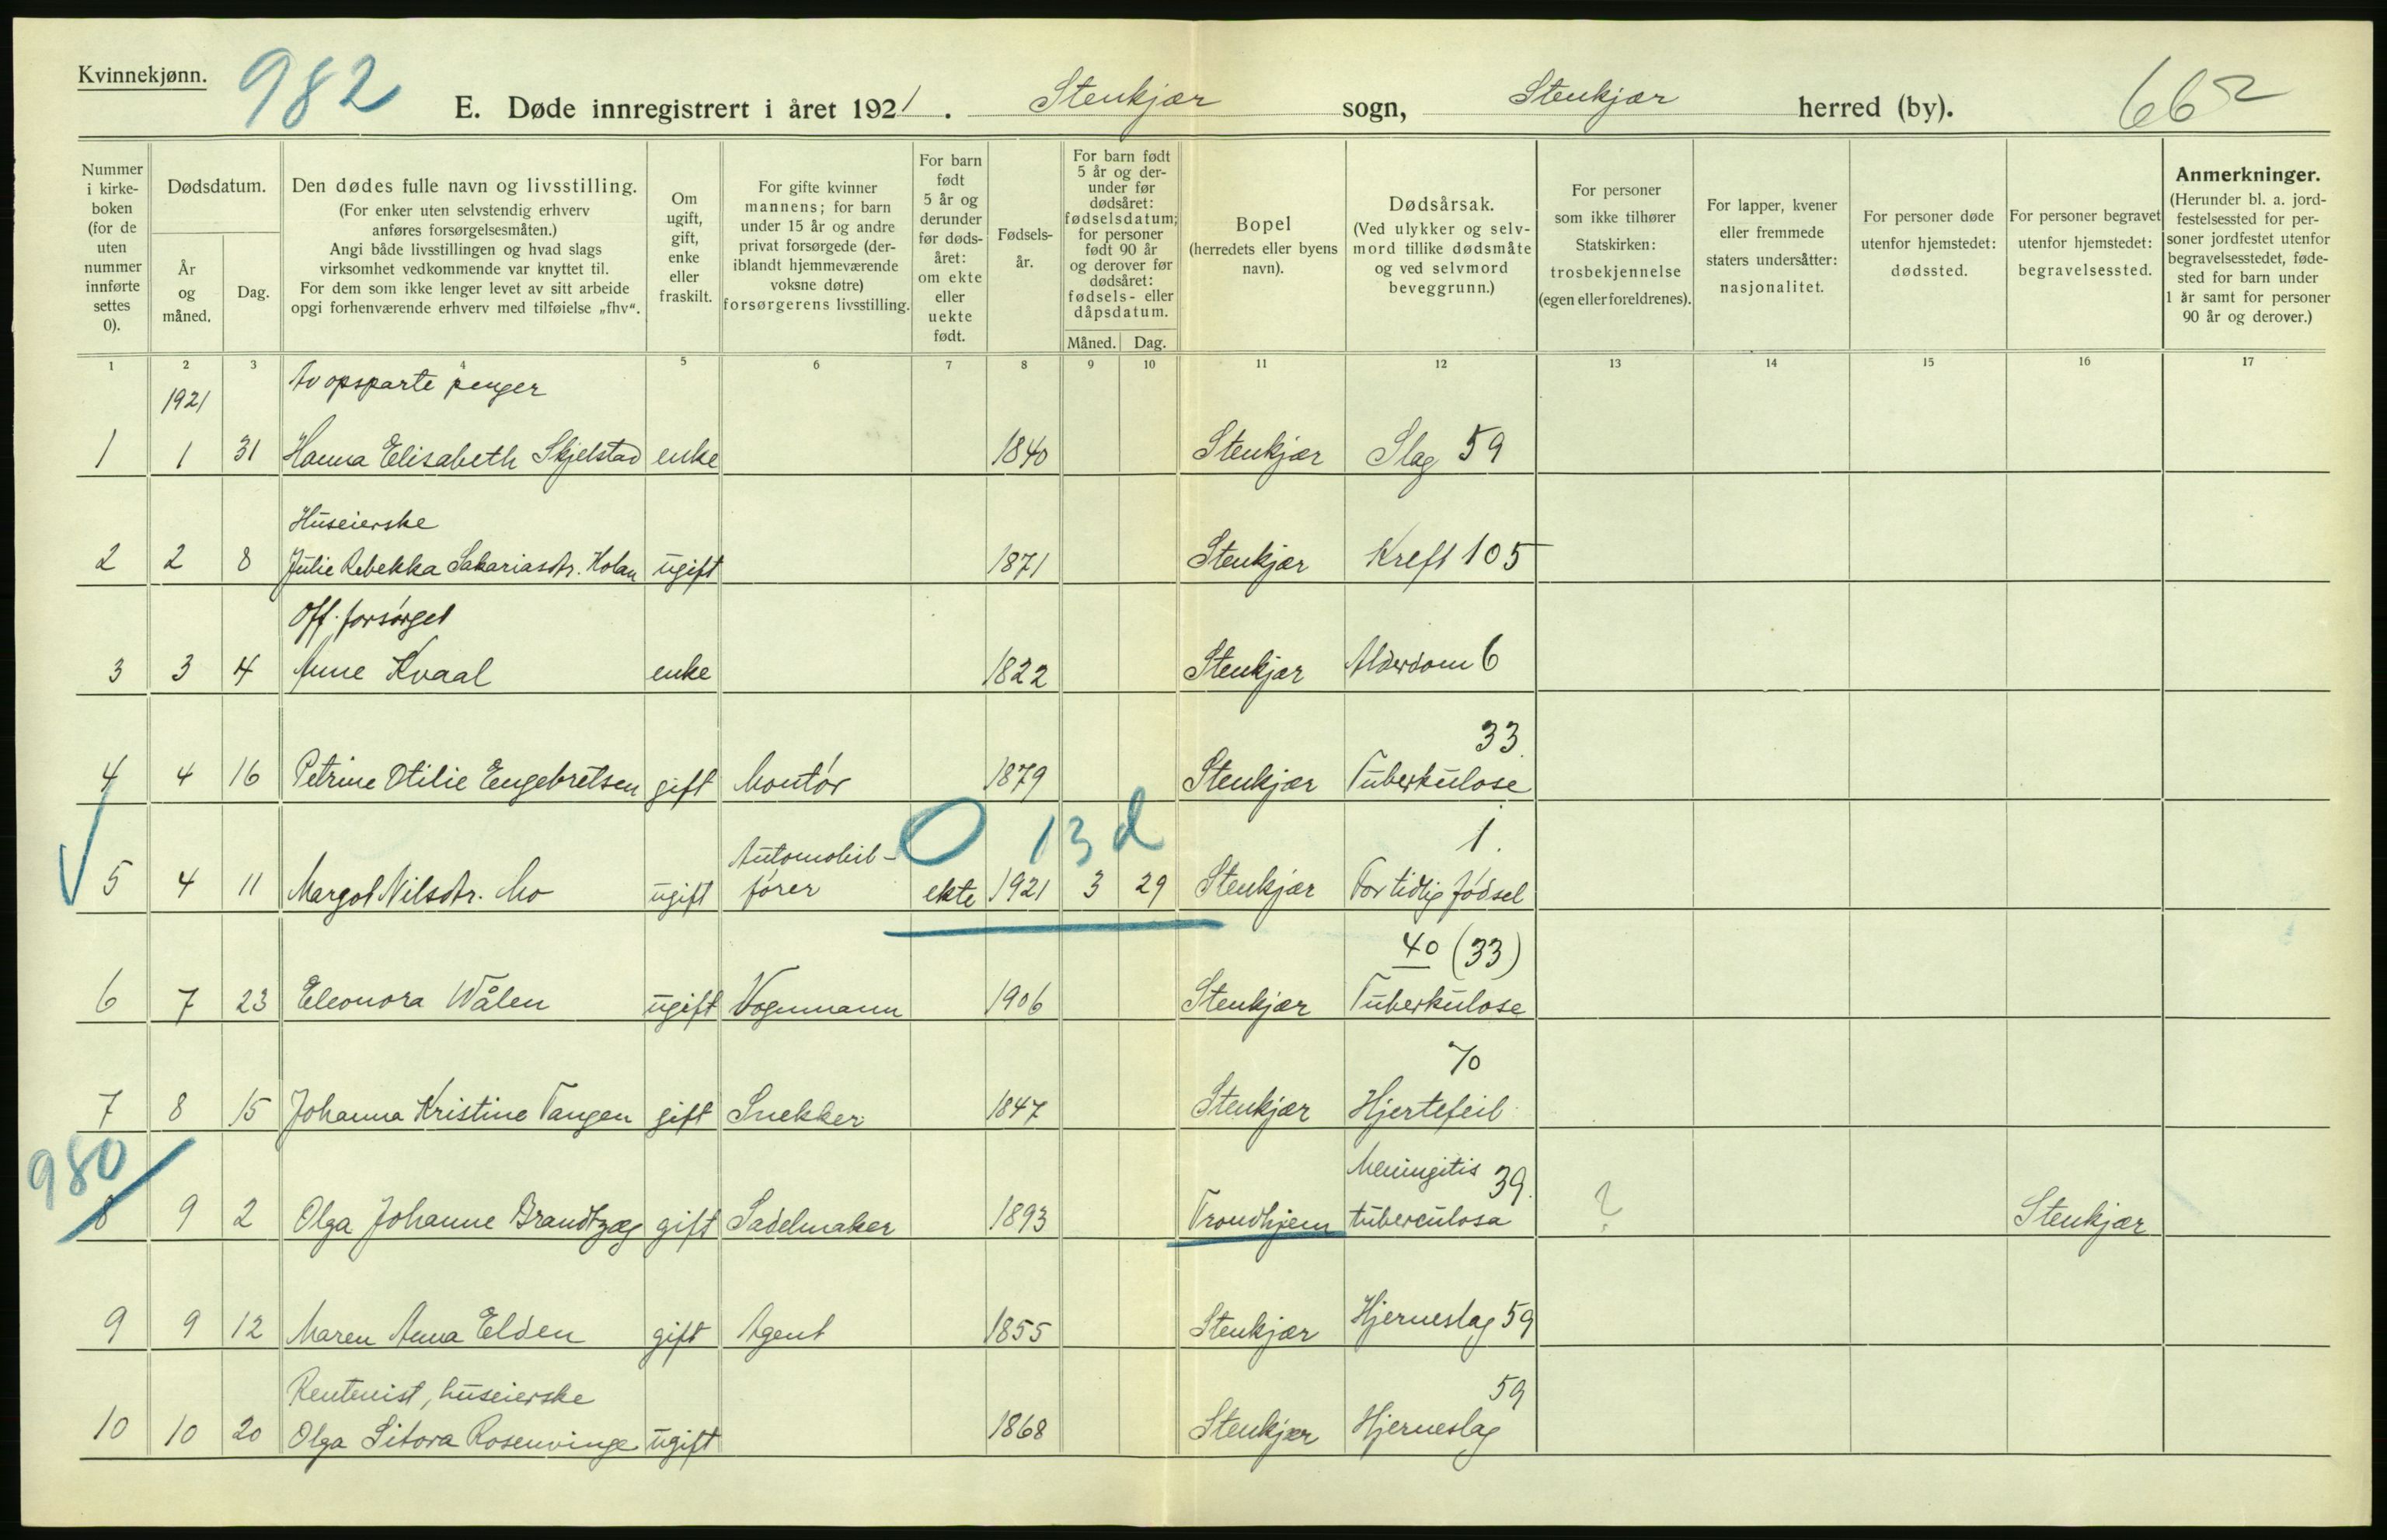 Kvinnekjønn.
982
E. Døde innregistrert i året 1921. Stenkjær sogn, Stenkjær herred (by).
662
Nummer i kirke-boken (for de uten nummer innførte settes 0).
Dødsdatum.
År og måned.
Dag.
Den dødes fulle navn og livsstilling.
(For enker uten selvstendig erhverv anføres forsørgelsesmåten.)
Angi både livsstillingen og hvad slags virksomhet vedkommende var knyttet til.
For dem som ikke lenger levet av sitt arbeide opgi forhenværende erhverv med tilføielse „fhv“.
Om ugift, gift, enke eller fraskilt.
For gifte kvinner mannens; for barn under 15 år og andre privat forsørgede (deriblandt hjemmeværende voksne døtre) forsørgerens livsstilling.
For barn født 5 år og derunder før dødsåret: om ekte eller uekte født.
Fødselsår.
For barn født 5 år og derunder før dødsåret: fødselsdatum; for personer født 90 år og derover før dødsåret: fødsels- eller dåpsdatum.
Måned. Dag.
Bopel
(herredets eller byens navn).
Dødsårsak.
(Ved ulykker og selvmord tillike dødsmåte og ved selvmord beveggrunn.)
For personer som ikke tilhører Statskirken: trosbekjennelse (egen eller foreldrenes).
For lapper, kvener eller fremmede staters undersåtter: nasjonalitet.
For personer døde utenfor hjemstedet: dødssted.
For personer begravet utenfor hjemstedet: begravelsessted.
Anmerkninger.
(Herunder bl. a. jordfestelsessted for personer jordfestet utenfor begravelsesstedet, fødested for barn under 1 år samt for personer 90 år og derover.)
1 2 3 4 5 6 7 8 9 10 11 12 13 14 15 16 17
1921 Av opsparte penger
1 1 31 Hanna Elisabeth Skjelstad enke 1840 Stenkjær Slag 59
Huseierske
2 2 8 Julie Rebekka Sakariasdtr. Holan ugift 1871 Stenkjær Kreft 105
Off. forsørget
3 3 4 Anne Kvaal enke 1822 Stenkjær Alderdom 6
33
4 4 16 Petrine Otilie Engebretsen gift Montør 1879 Stenkjær Tuberkulose
Automobil- 0 13 d 1.
5 4 11 Margot Nilsdtr. Mo ugift fører ekte 1921 3 29 Stenkjær For tidlig fødsel
40 (33)
6 7 23 Eleonora Wålen ugift Vognmann 1906 Stenkjær Tuberkulose
70
7 8 15 Johanna Kristine Tangen gift Snekker 1847 Stenkjær Hjertefeil
980 Meningitis 39.
8 9 2 Olga Johanne Brandtzæg gift Sadelmaker 1893 Trondhjem tuberculosa ? Stenkjær
9 9 12 Maren Anna Elden gift Agent 1855 Stenkjær Hjerneslag 59
Rentenist, huseierske 59
10 10 20 Olga Sitora Rosenvinge ugift 1868 Stenkjær Hjerneslag